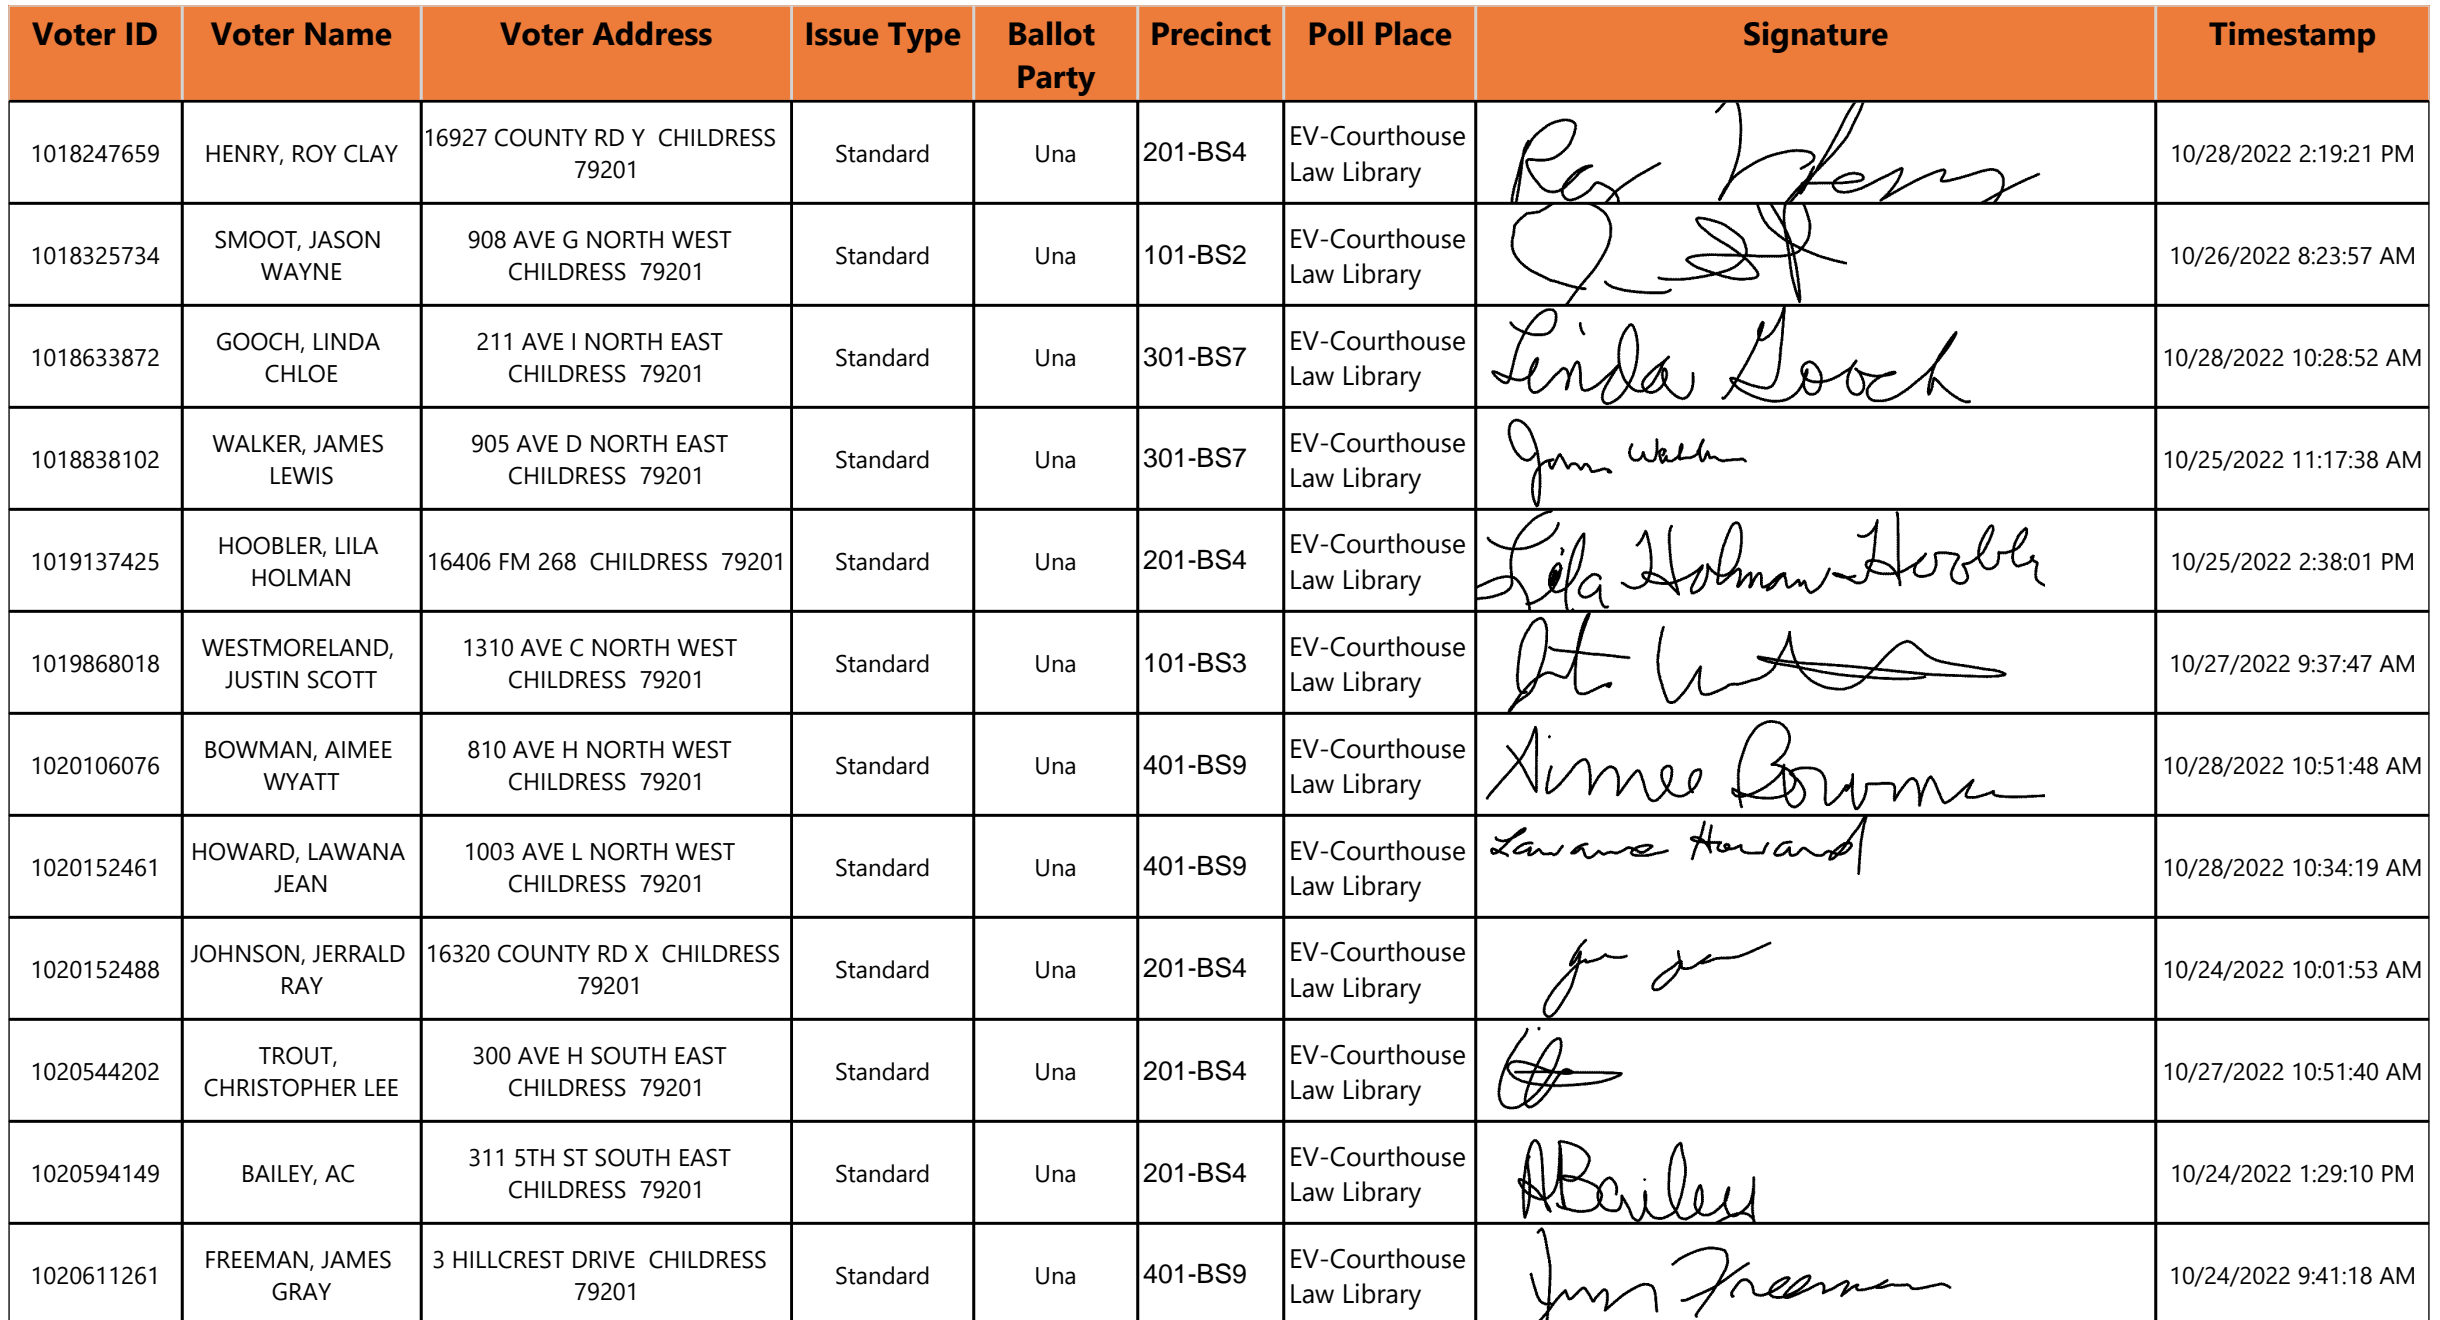 Voter ID Voter Name Voter Address Issue Type Ballot Party Precinct Poll Place Signature Timestamp
1018247659 HENRY, ROY CLAY 16927 COUNTY RD Y CHILDRESS 79201 Standard Una 201-BS4 EV-Courthouse Law Library Roy Henry 10/28/2022 2:19:21 PM
1018325734 SMOOT, JASON WAYNE 908 AVE G NORTH WEST CHILDRESS 79201 Standard Una 101-BS2 EV-Courthouse Law Library 10/26/2022 8:23:57 AM
1018633872 GOOCH, LINDA CHLOE 211 AVE I NORTH EAST CHILDRESS 79201 Standard Una 301-BS7 EV-Courthouse Law Library Linda Gooch 10/28/2022 10:28:52 AM
1018838102 WALKER, JAMES LEWIS 905 AVE D NORTH EAST CHILDRESS 79201 Standard Una 301-BS7 EV-Courthouse Law Library 10/25/2022 11:17:38 AM
1019137425 HOOBLER, LILA HOLMAN 16406 FM 268 CHILDRESS 79201 Standard Una 201-BS4 EV-Courthouse Law Library Lila Holman-Hoobler 10/25/2022 2:38:01 PM
1019868018 WESTMORELAND, JUSTIN SCOTT 1310 AVE C NORTH WEST CHILDRESS 79201 Standard Una 101-BS3 EV-Courthouse Law Library 10/27/2022 9:37:47 AM
1020106076 BOWMAN, AIMEE WYATT 810 AVE H NORTH WEST CHILDRESS 79201 Standard Una 401-BS9 EV-Courthouse Law Library Aimee Bowman 10/28/2022 10:51:48 AM
1020152461 HOWARD, LAWANA JEAN 1003 AVE L NORTH WEST CHILDRESS 79201 Standard Una 401-BS9 EV-Courthouse Law Library Lawana Howard 10/28/2022 10:34:19 AM
1020152488 JOHNSON, JERRALD RAY 16320 COUNTY RD X CHILDRESS 79201 Standard Una 201-BS4 EV-Courthouse Law Library 10/24/2022 10:01:53 AM
1020544202 TROUT, CHRISTOPHER LEE 300 AVE H SOUTH EAST CHILDRESS 79201 Standard Una 201-BS4 EV-Courthouse Law Library 10/27/2022 10:51:40 AM
1020594149 BAILEY, AC 311 5TH ST SOUTH EAST CHILDRESS 79201 Standard Una 201-BS4 EV-Courthouse Law Library A Bailey 10/24/2022 1:29:10 PM
1020611261 FREEMAN, JAMES GRAY 3 HILLCREST DRIVE CHILDRESS 79201 Standard Una 401-BS9 EV-Courthouse Law Library Freeman 10/24/2022 9:41:18 AM